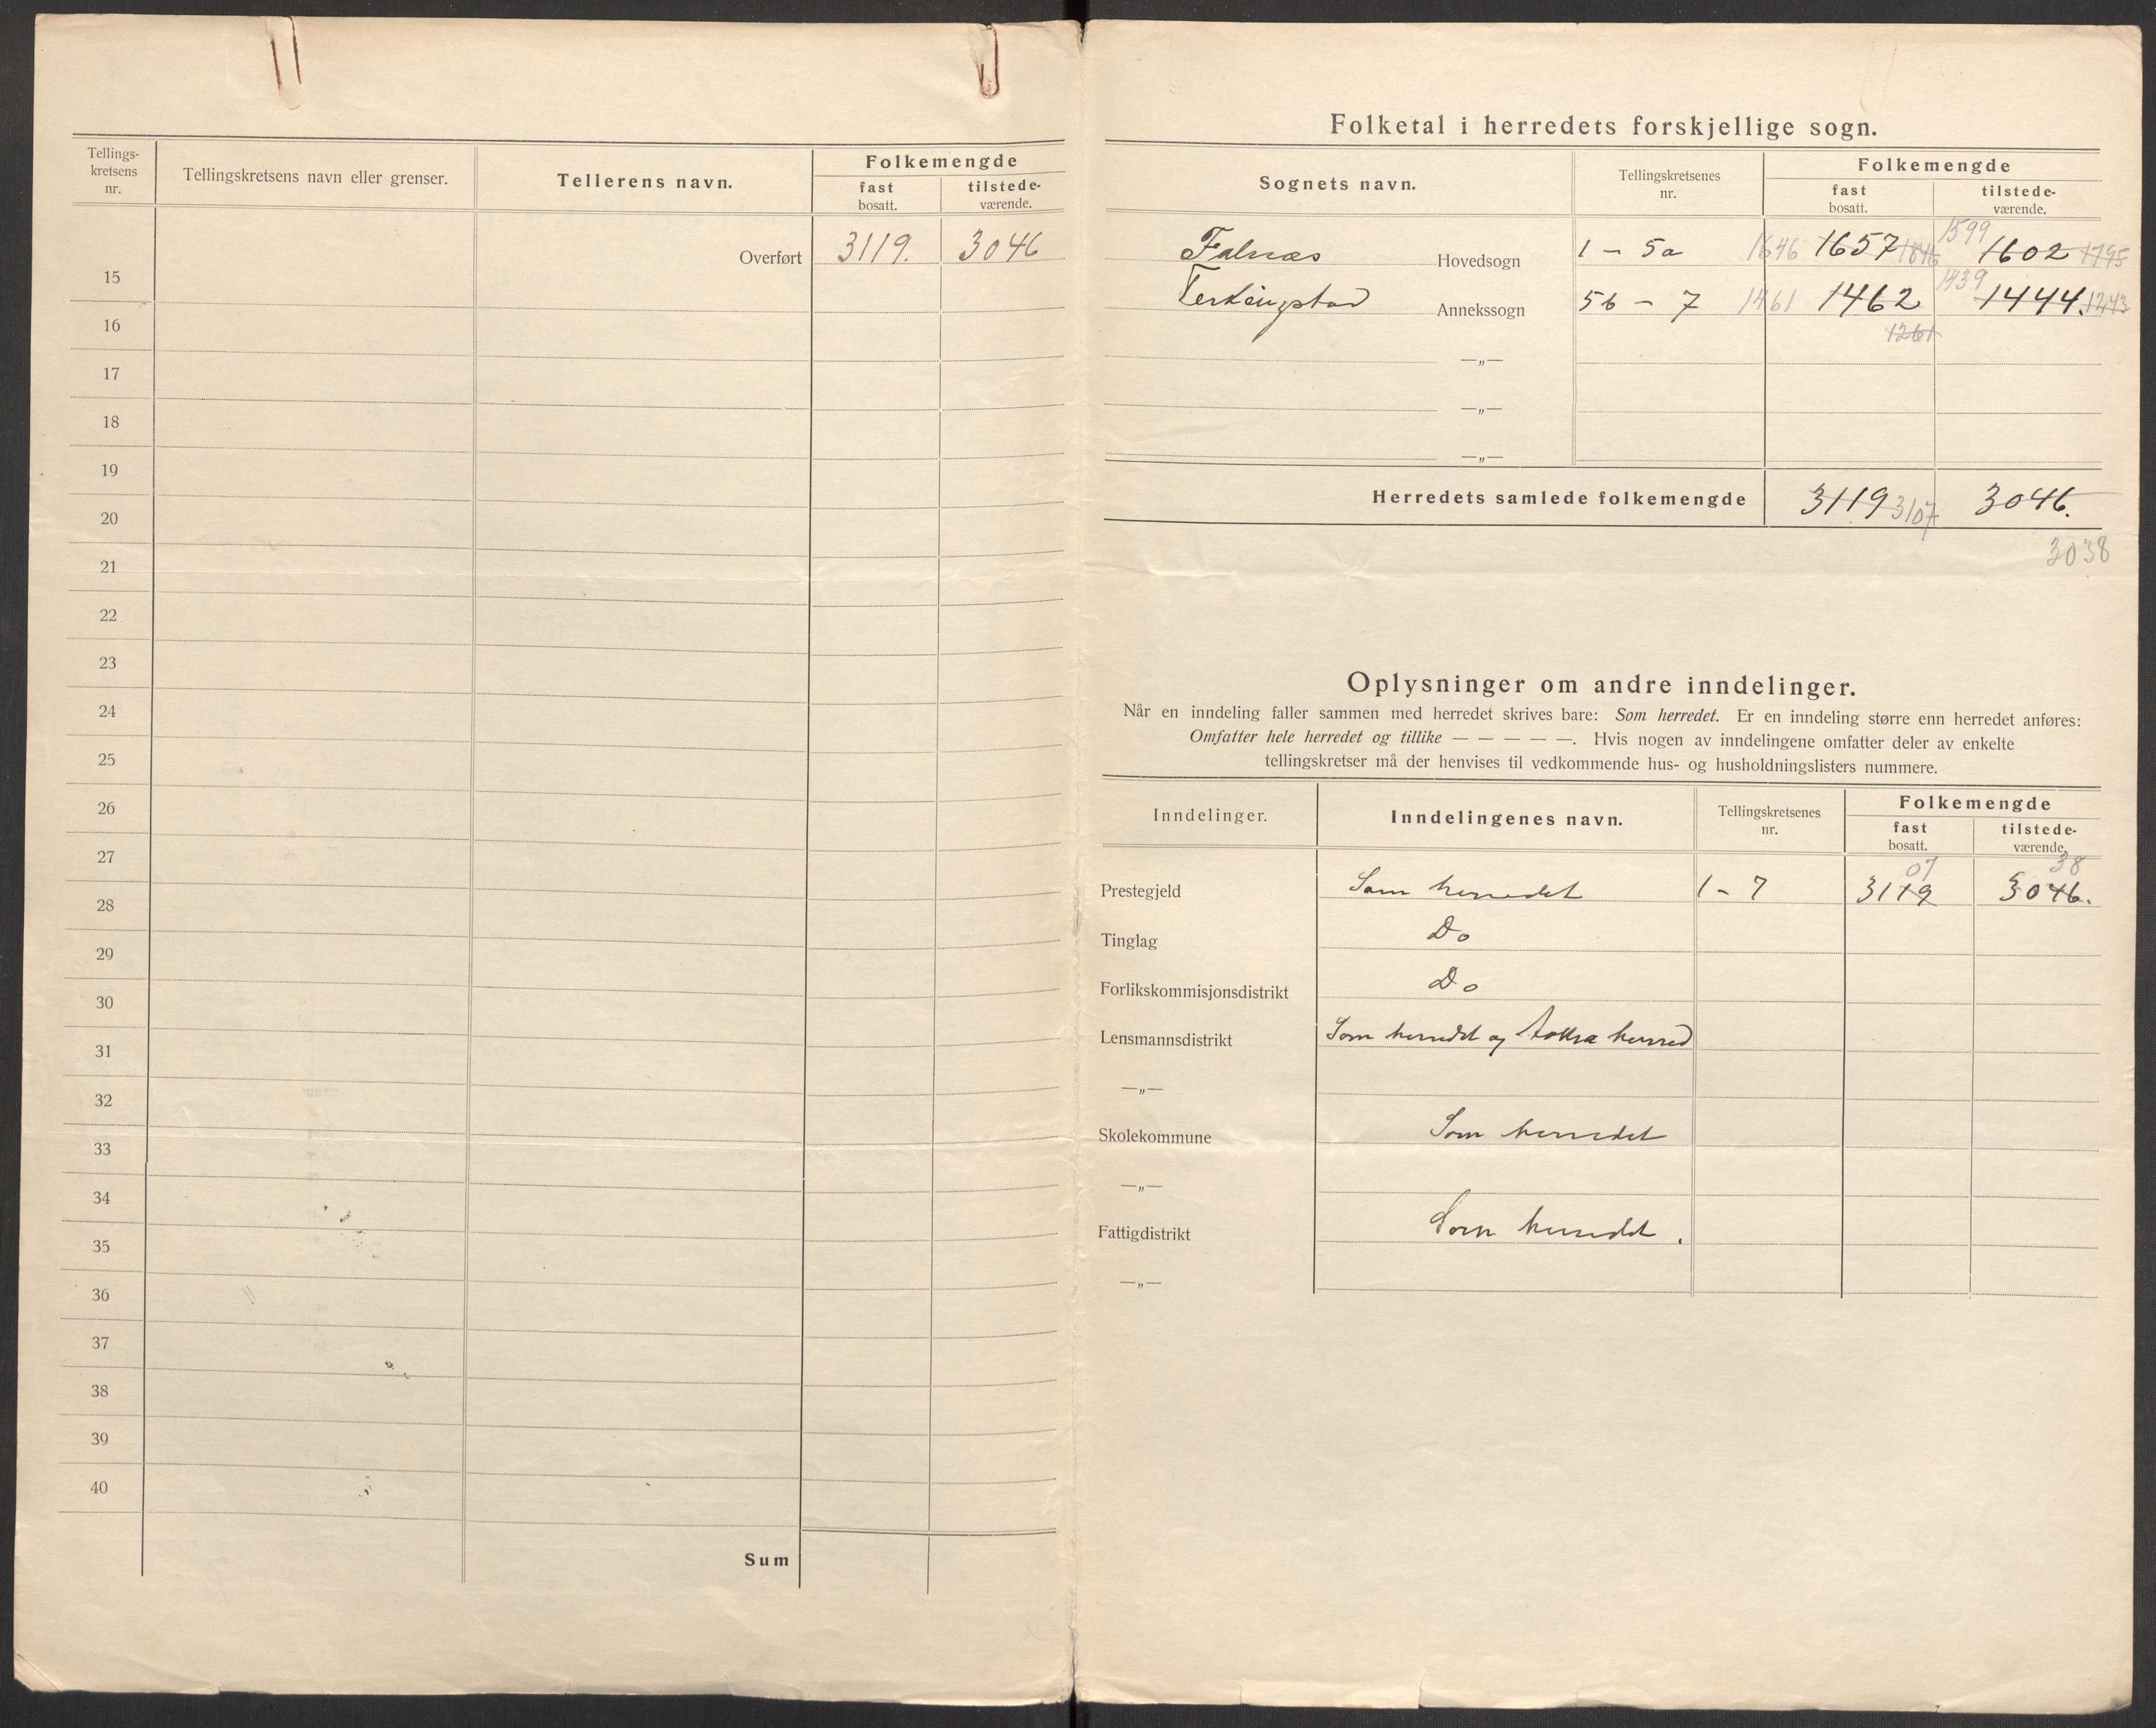 Tellings-
kretsens
nr.
Tellingskretsens navn eller grenser.
Tellerens navn.
Folkemengde
fast
bosatt.
tilstede-
værende.
Overført 3119. 3046
15
16
17
18
19
20
21
22
23
24
25
26
27
28
29
30
31
32
33
34
35
36
37
38
39
40
Sum
Folketal i herredets forskjellige sogn.
Sognets navn.
Tellingskretsenes
nr.
Folkemengde
fast
bosatt.
tilstede-
værende.
Falnæs Hovedsogn 1 - 5a 1646 1657 1846 1599 1602 1795
Annekssogn 5b - 7 1461 1462 1261 1439 1444. 1243
—„—
—„—
—„—
Herredets samlede folkemengde 3119 3107 3046.
3038
Oplysninger om andre inndelinger.
Når en inndeling faller sammen med herredet skrives bare: Som herredet. Er en inndeling større enn herredet anføres:
Omfatter hele herredet og tillike — — — — —. Hvis nogen av inndelingene omfatter deler av enkelte
tellingskretser må der henvises til vedkommende hus- og husholdningslisters nummere.
Inndelinger.
Inndelingenes navn.
Tellingskretsenes
nr.
Folkemengde
fast
bosatt.
tilstede-
værende.
07 38
Prestegjeld Som herredet 1 - 7 3119 3046.
Tinglag Do
Forlikskommisjonsdistrikt Do
Lensmannsdistrikt Som herredet og herred
—„—
Skolekommune Som herredet
—„—
Fattigdistrikt Som herredet.
—„—